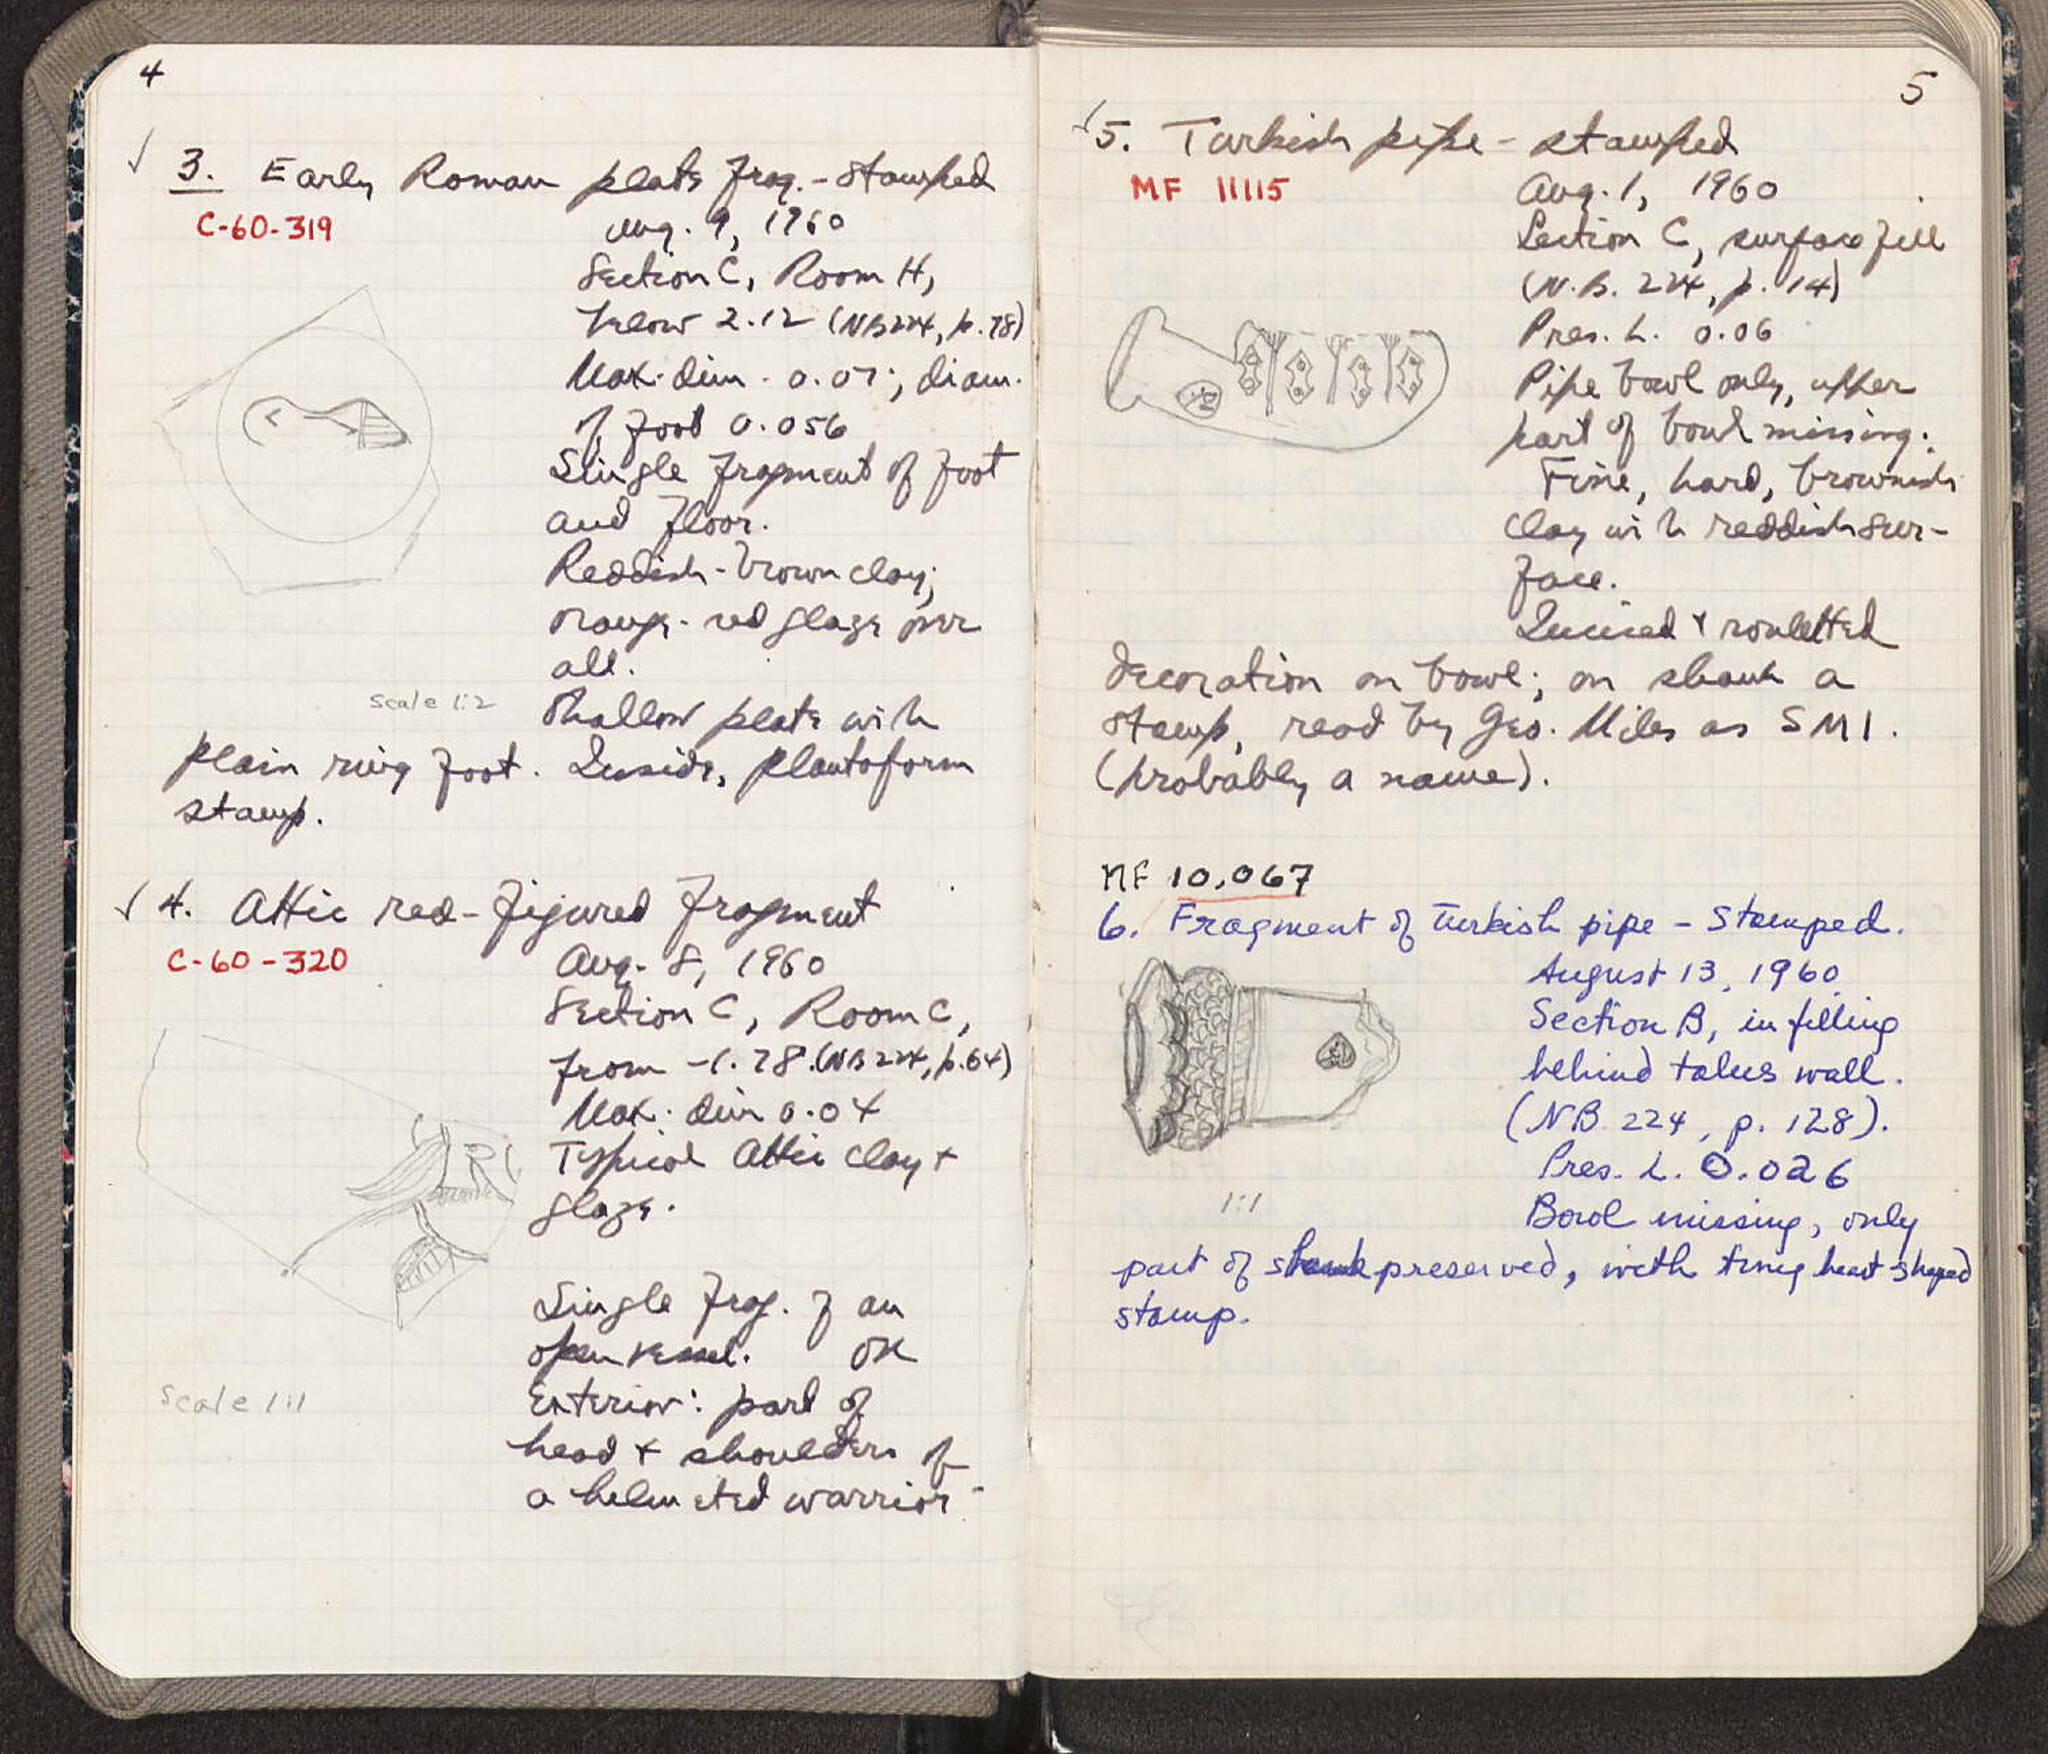 4
✓ 3. Early Roman plate frag. - stamped
C-60-319
Aug. 9, 1960
Section C, Room H,
below 2.12 (NB 224, p. 78)
Max. dim. 0.07; diam.
of foot 0.056
Single fragment of foot
and floor.
Reddish-brown clay;
orange-red glaze over
all.
scale 1:2
Shallow plate with
plain ring foot. Inside, plantaform
stamp.
✓ 4. Attic red-figured fragment
C-60-320
Aug. 8, 1960
Section C, Room C,
from -1.78. (NB 224, p. 64)
Max. dim 0.04
Typical Attic clay +
glaze.
Single frag. of an
open vessel. OK
Scale 1:1
Exterior: part of
head + shoulders of
a helmeted warrior -
5
✓ 5. Turkish pipe - stamped
MF 11115
Aug. 1, 1960
Section C, surface fill
(N.B. 224, p. 14)
Pres. L. 0.06
Pipe bowl only, upper
part of bowl missing.
Fine, hard, brownish
clay with reddish sur-
face.
Incised + rouletted
decoration on bowl; on shank a
stamp, read by Geo. Miles as SMI.
(probably a name).
MF 10,067
6. Fragment of Turkish pipe - Stamped.
August 13, 1960
Section B, in filling
behind talus wall.
(NB 224, p. 128).
Pres. L. 0.026
1:1
Bowl missing, only
part of shank preserved, with tiny heart-shaped
stamp.